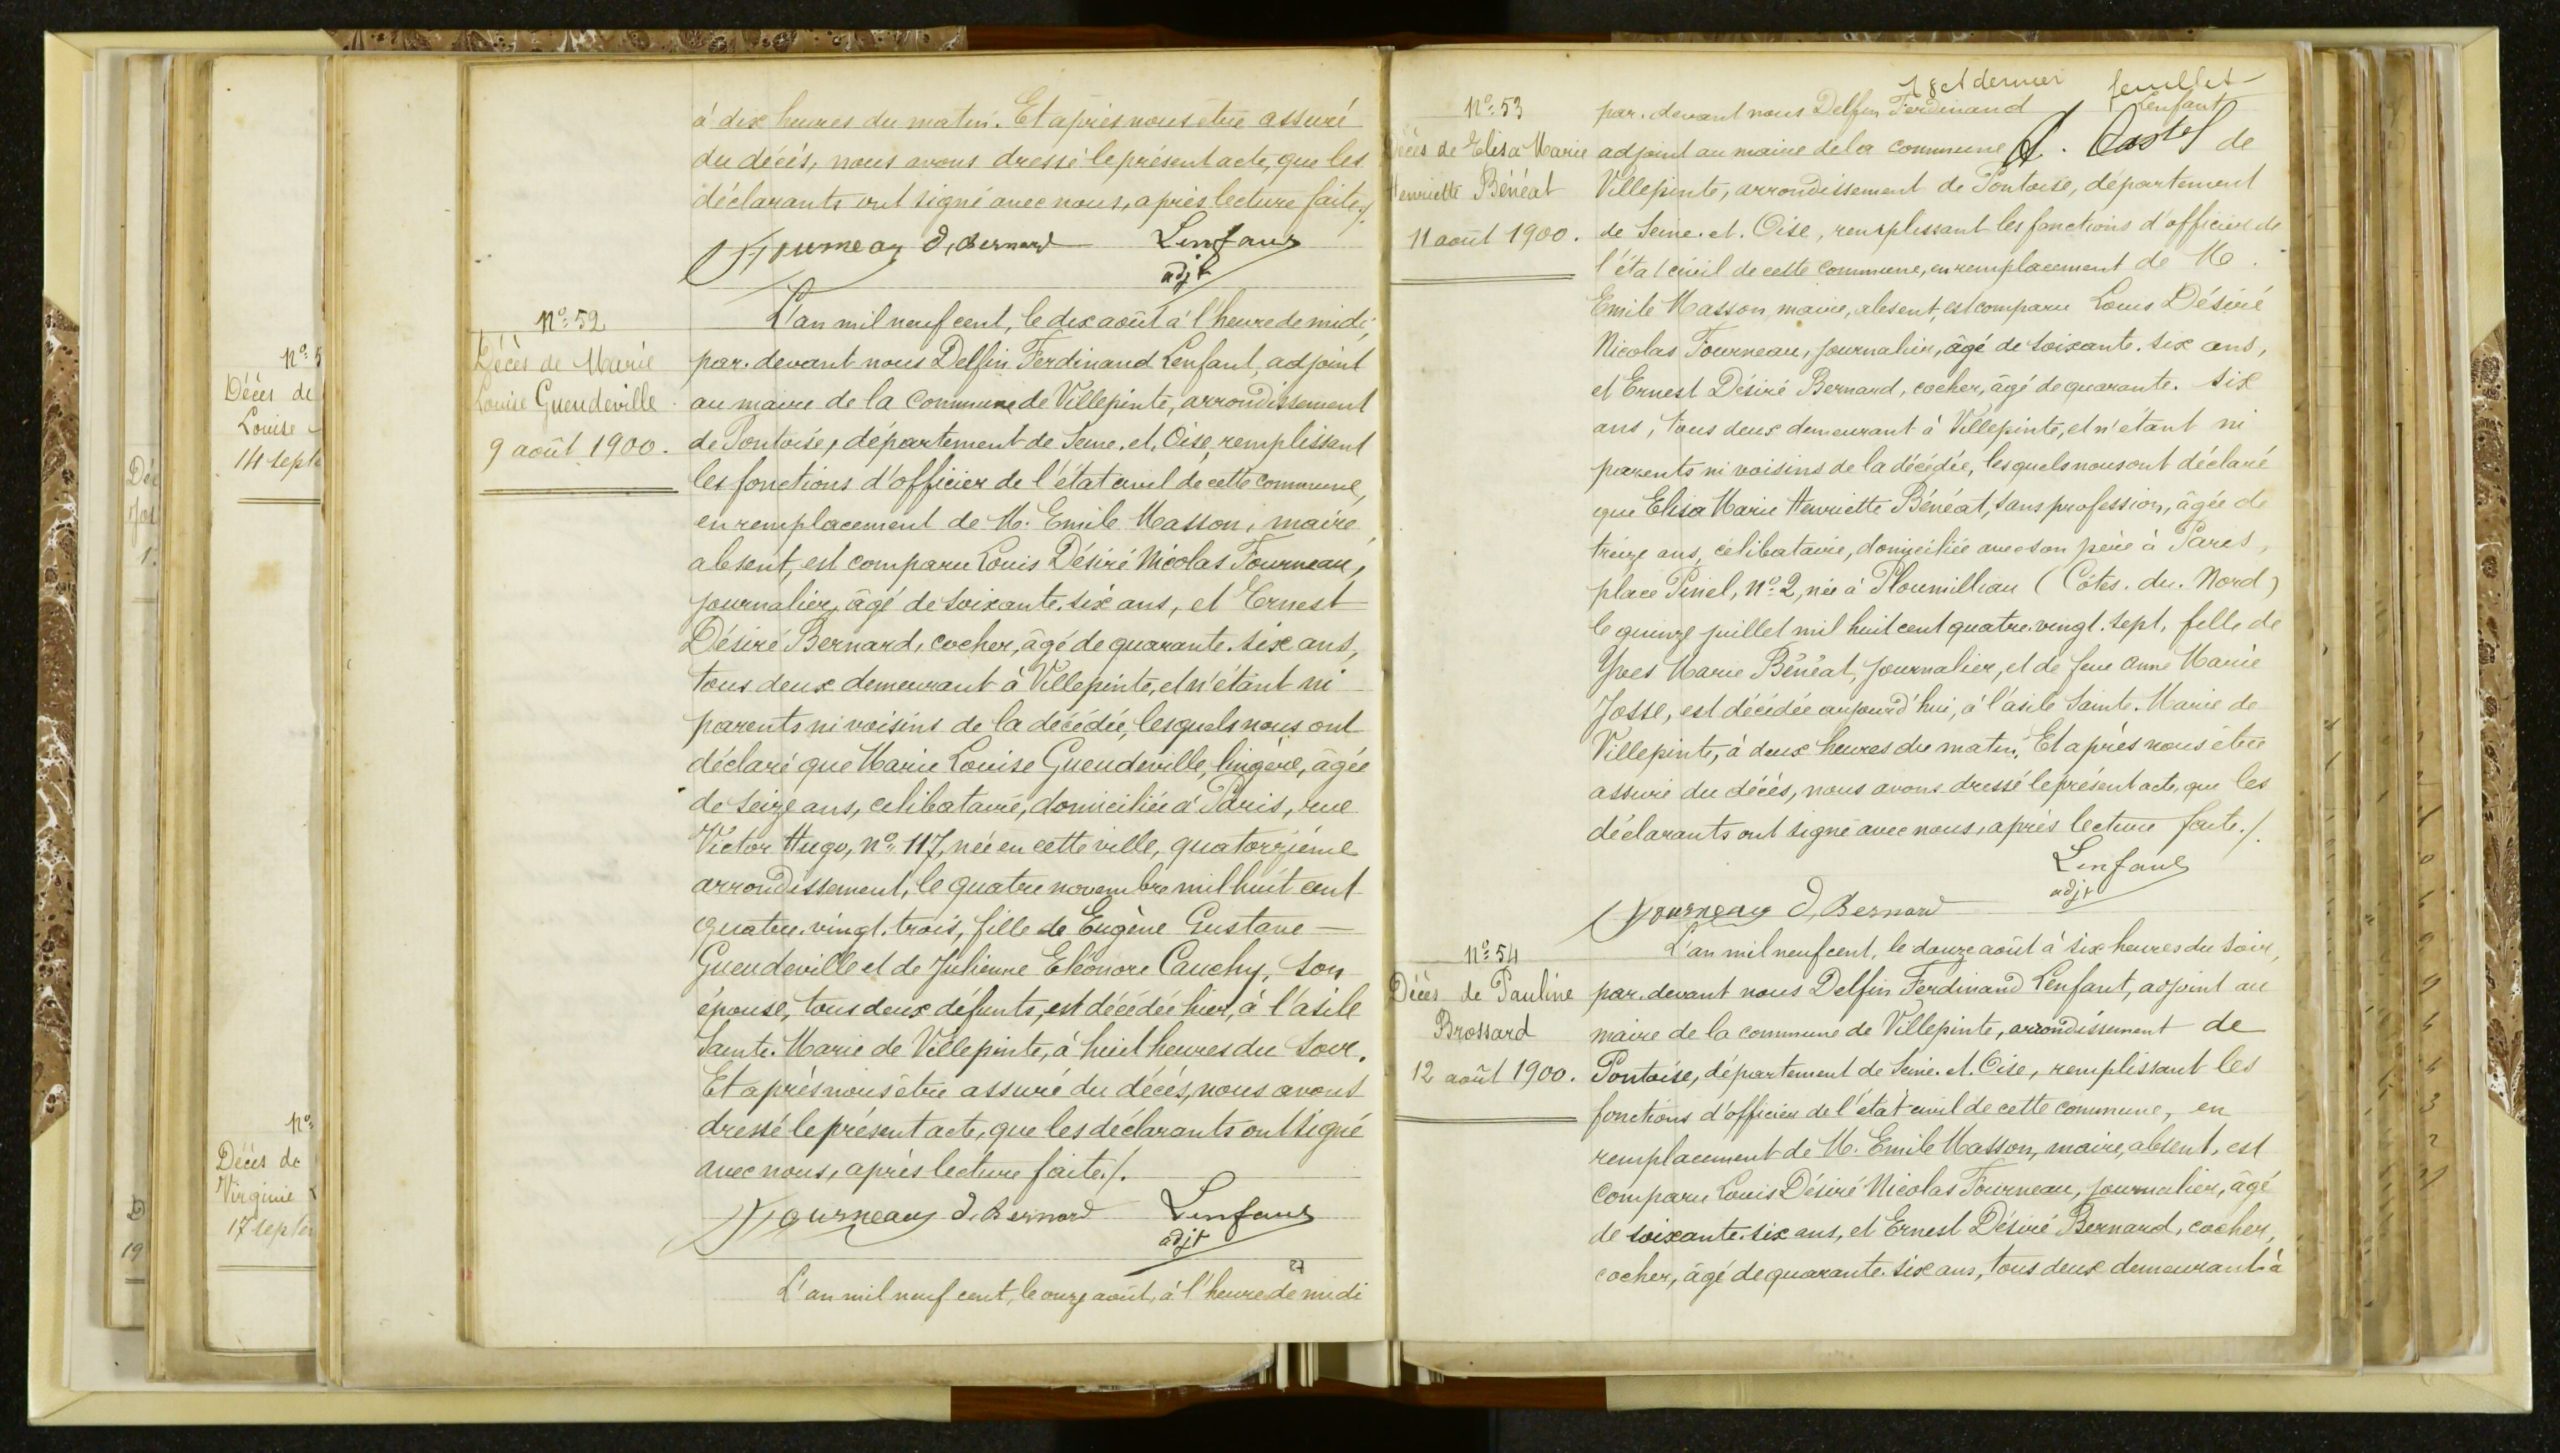 à dix heures du matin. Et après nous être assuré
du décès, nous avons dressé le présent acte, que les
déclarants ont signé avec nous, après lecture faite./.
Fourneau D. Bernard Lenfant
adjt
N° 52
Décès de Marie
Louise Gueudeville
9 août 1900.
L'an mil neuf cent, le dix août à l'heure de midi,
par-devant nous Delfin Ferdinand Lenfant, adjoint
au maire de la Commune de Villepinte, arrondissement
de Pontoise, département de Seine-et-Oise, remplissant
les fonctions d'officier de l'état civil de cette commune,
en remplacement de M. Emile Masson, maire
absent, est comparu Louis Désiré Nicolas Fourneau,
journalier, âgé de soixante-six ans, et Ernest
Désiré Bernard, cocher, âgé de quarante-six ans,
tous deux demeurant à Villepinte, et n'étant ni
parents ni voisins de la décédée, lesquels nous ont
déclaré que Marie Louise Gueudeville, lingère, âgée
de seize ans, célibataire, domiciliée à Paris, rue
Victor Hugo, n° 117, née en cette ville, quatorzième
arrondissement, le quatre novembre mil huit cent
quatre-vingt-trois, fille de Eugène Gustave —
Gueudeville et de Julienne Eléonore Cauchy, son
épouse, tous deux défunts, est décédée hier, à l'asile
Sainte-Marie de Villepinte, à huit heures du soir.
Et après nous être assuré du décès, nous avons
dressé le présent acte, que les déclarants ont signé
avec nous, après lecture faite./.
Fourneau D. Bernard Lenfant
adjt
L'an mil neuf cent, le onze août, à l'heure de midi
18 et dernier feuillet
A. Castel
N° 53
Décès de Elisa Marie
Henriette Bénéat
11 août 1900.
par-devant nous Delfin Ferdinand Lenfant
adjoint au maire de la commune de
Villepinte, arrondissement de Pontoise, département
de Seine-et-Oise, remplissant les fonctions d'officier de
l'état civil de cette commune, en remplacement de M.
Emile Masson, maire, absent, est comparu Louis Désiré
Nicolas Fourneau, journalier, âgé de soixante-six ans,
et Ernest Désiré Bernard, cocher, âgé de quarante-six
ans, tous deux demeurant à Villepinte, et n'étant ni
parents ni voisins de la décédée, lesquels nous ont déclaré
que Elisa Marie Henriette Bénéat, sans profession, âgée de
treize ans, célibataire, domiciliée avec son père à Paris,
place Pinel, n° 2, née à Ploumilliau (Côtes-du-Nord)
le quinze juillet mil huit cent quatre-vingt-sept, fille de
Yves Marie Bénéat, journalier, et de feue Anne Marie
Josse, est décédée aujourd'hui, à l'asile Sainte-Marie de
Villepinte, à deux heures du matin. Et après nous être
assuré du décès, nous avons dressé le présent acte, que les
déclarants ont signé avec nous, après lecture faite./.
Lenfant
adjt
Fourneau D. Bernard
N° 54
Décès de Pauline
Brossard
12 août 1900.
L'an mil neuf cent, le douze août à six heures du soir,
par-devant nous Delfin Ferdinand Lenfant, adjoint au
maire de la commune de Villepinte, arrondissement de
Pontoise, département de Seine-et-Oise, remplissant les
fonctions d'officier de l'état civil de cette commune, en
remplacement de M. Emile Masson, maire, absent, est
comparu Louis Désiré Nicolas Fourneau, journalier, âgé
de soixante-six ans, et Ernest Désiré Bernard, cocher,
cocher, âgé de quarante-six ans, tous deux demeurant à
N° 5
Décès de
Louise
14 septe
N°
Décès de
Virginie
17 septem